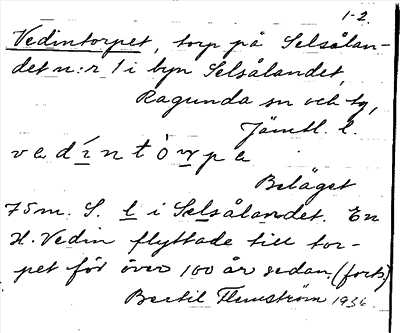 1-2.
Vedintorpet, torp på Selsålan-
det n:r 1 i byn Selsålandet,
Ragunda sn och tg,
Jämtl. l.
vadíntòrpa
Beläget
75 m. S. l i Selsålandet. En
H. Vedin flyttade till tor-
pet för över 100 år sedan. (forts)
Bertil Flemström 1936